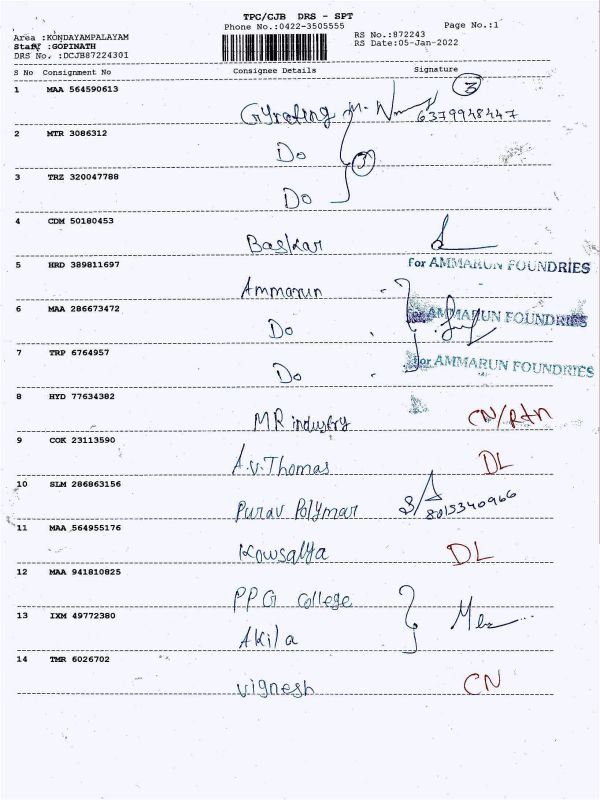 TPC/CJB DRS - SPT
Phone No.:0422-3505555 Page No.:1
Area :KONDAYAMPALAYAM RS No.:872243
Staff :GOPINATH RS Date:05-Jan-2022
DRS No. :DCJB87224301
S No Consignment No Consignee Details Signature
1 MAA 564590613 3
6379948447
2 MTR 3086312
Do
3 TRZ 320047788
Do
4 CDM 50180453
Baskar
5 HRD 389811697 for AMMARUN FOUNDRIES
Ammarun
6 MAA 286673472 for AMMARUN FOUNDRIES
Do
7 TRP 6764957 for AMMARUN FOUNDRIES
Do
8 HYD 77634382
MR industry CN/Rtn
9 COK 23113590
A.V.Thomas DL
10 SLM 286863156
Purav Polymar 8015340966
11 MAA 564955176
Kowsalya DL
12 MAA 941810825
PPG College
13 IXM 49772380
Akila
14 TMR 6026702
Vignesh CN